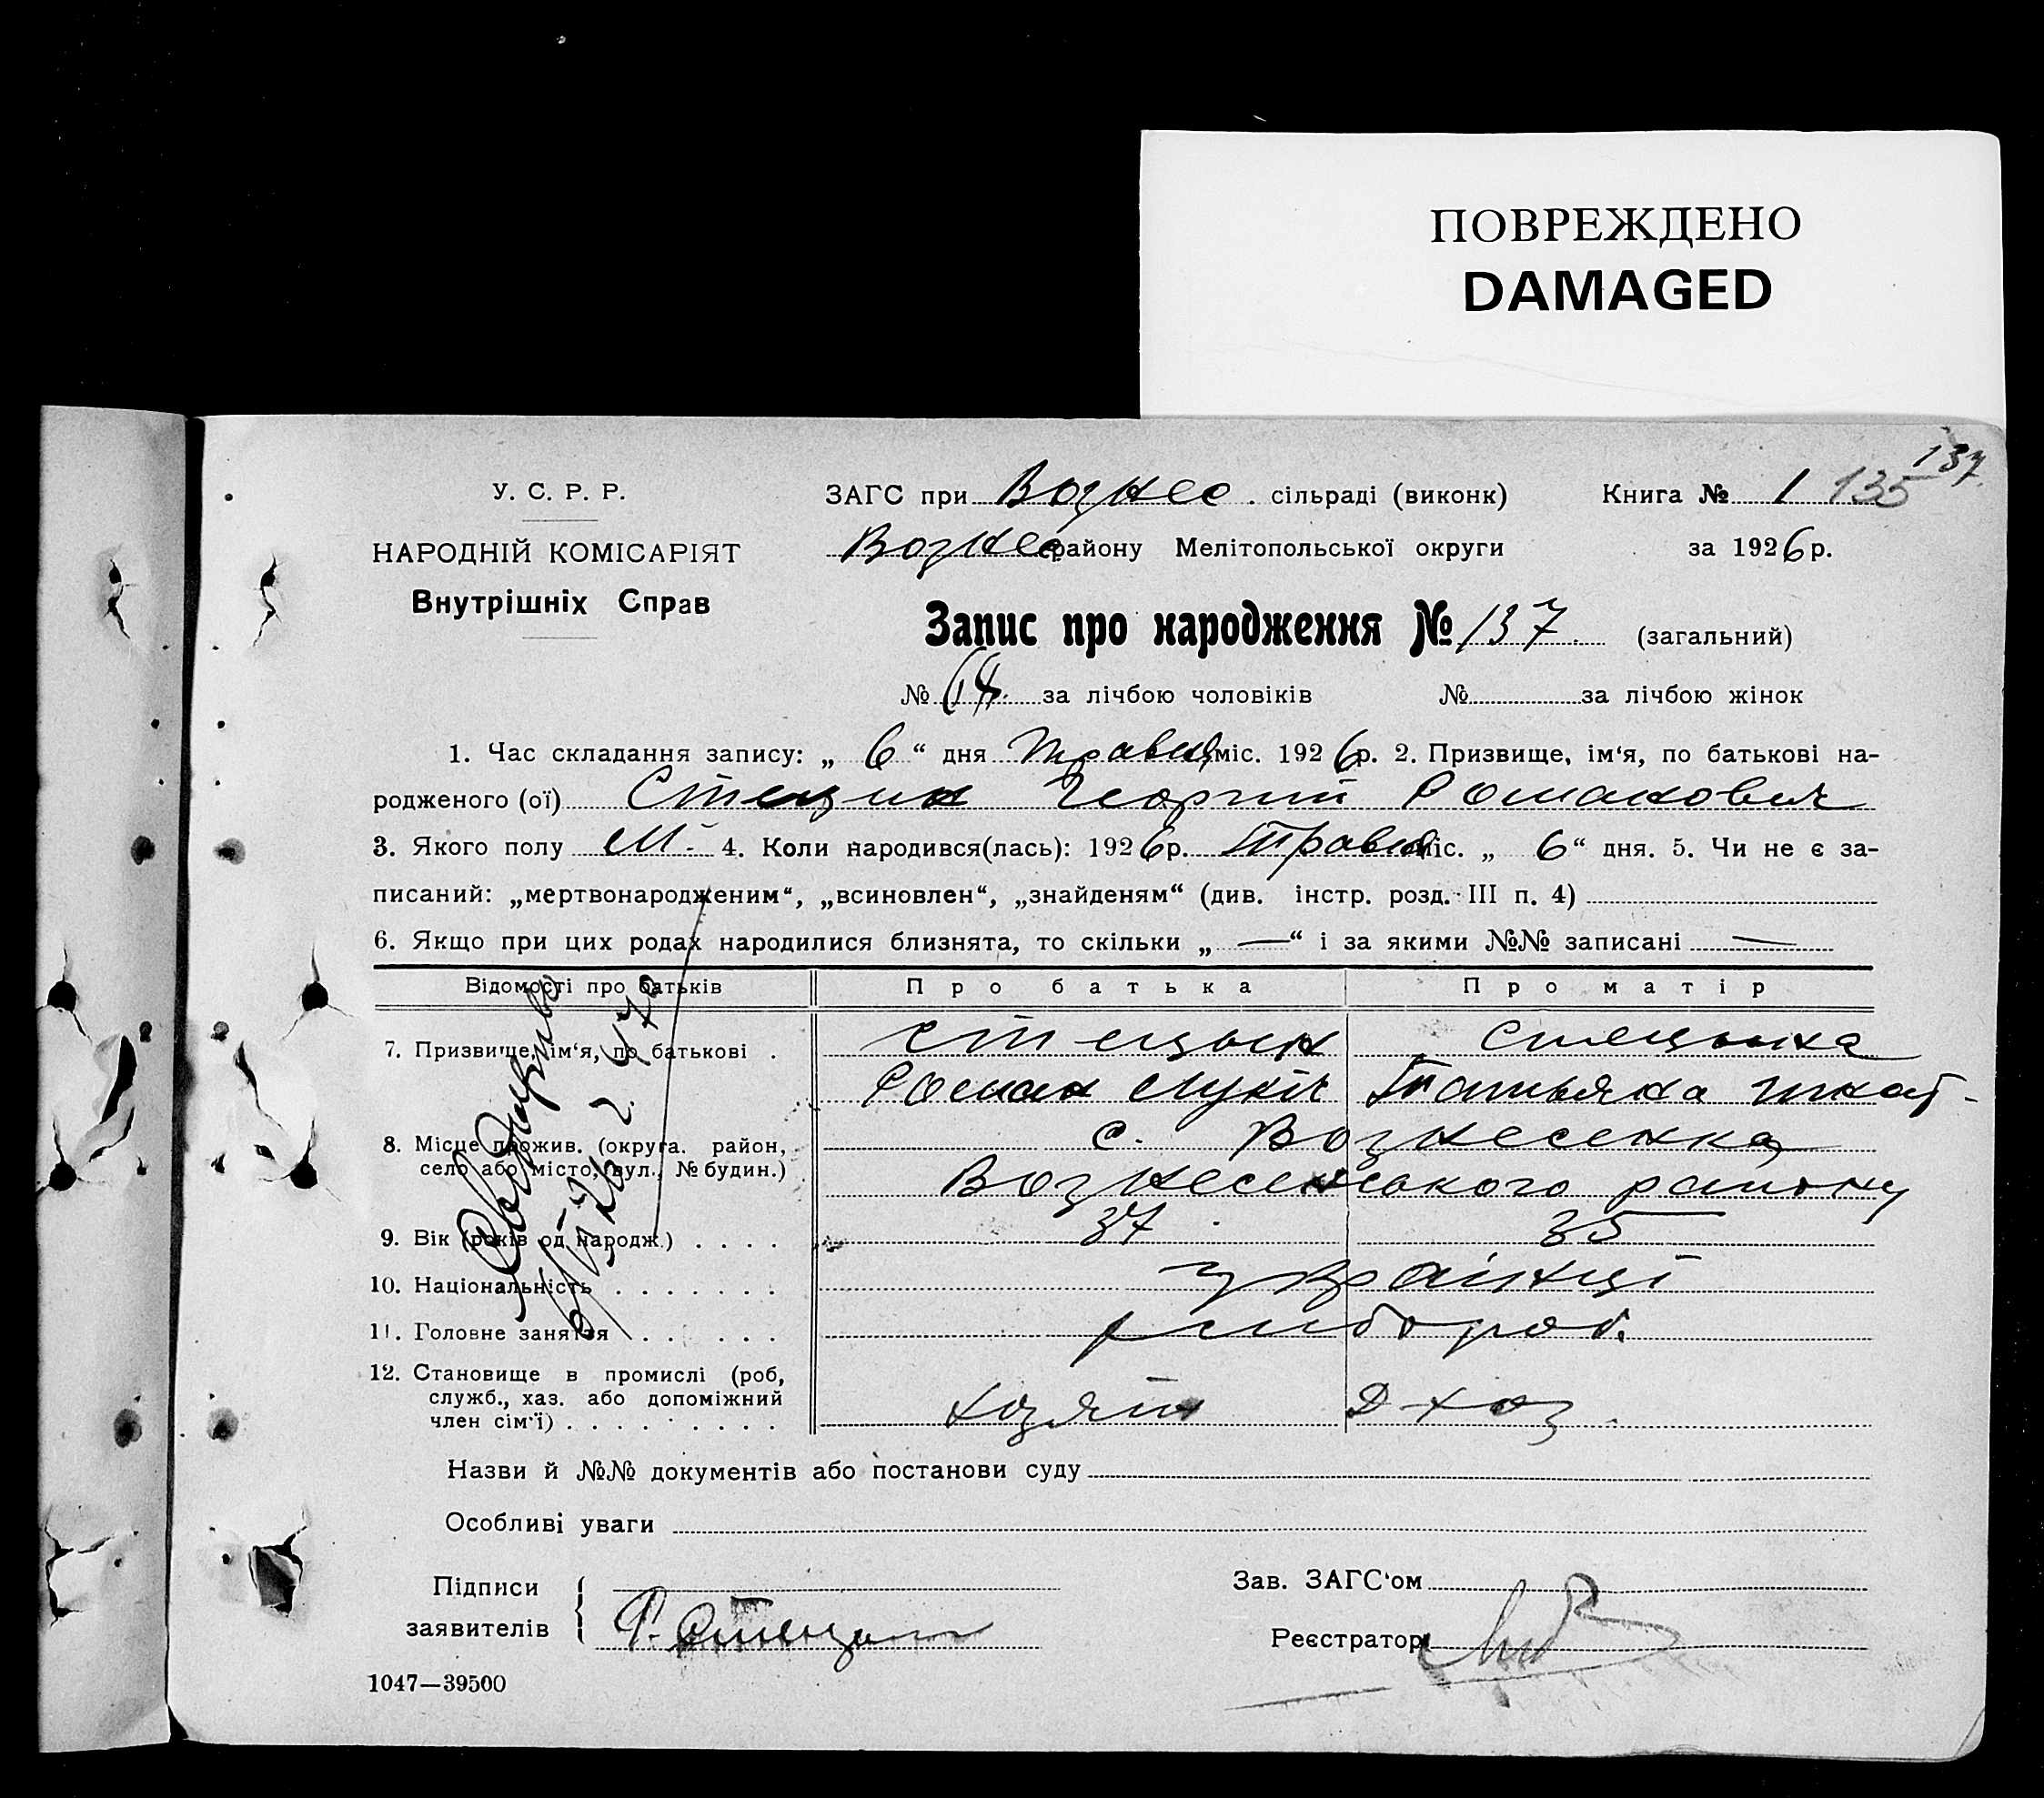 ПОВРЕЖДЕНО
DAMAGED
137
У. С. Р. Р.
ЗАГС при Вознес. сільраді (виконк)
Книга № 1 135
НАРОДНІЙ КОМІСАРІЯТ
Внутрішніх Справ
Вознес району Мелітопольської округи
за 1926 р.
Запис про народження № 137. (загальний)
№ 64. за лічбою чоловіків № за лічбою жінок
1. Час складання запису: „ 6 “ дня травня міс. 1926 р. 2. Призвище, ім‘я, по батькові на-
родженого (ої) Стецин Георгій Романович
3. Якого полу М. 4. Коли народився(лась): 1926 р. травня міс. „ 6 “ дня. 5. Чи не є за-
писаний: „мертвонародженим“, „всиновлен“, „знайденям“ (див. інстр. розд. III п. 4)
6. Якщо при цих родах народилися близнята, то скільки „ — “ і за якими №№ записані —
Відомості про батьків Про батька Про матір
7. Призвище, ім‘я, по батькові . Стецын
Роман Лукіч Татьяна Игнат-
8. Місце прожив. (округа. район, с. Вознесенка
село або місто, вул., № будин.) Вознесенського району
9. Вік (років од народж.) . . . . 37 35
10. Національність . . . . . . . українці
11. Головне заняття . . . . . . хлібороб.
12. Становище в промислі (роб,
служб., хаз. або допоміжний
член сім‘ї) . . . . . . . . хозяін Д-хоз.
Назви й №№ документів або постанови суду
Особливі уваги
Підписи
заявителів Р. Стецын
Зав. ЗАГС‘ом
Реєстратор
1047—39500